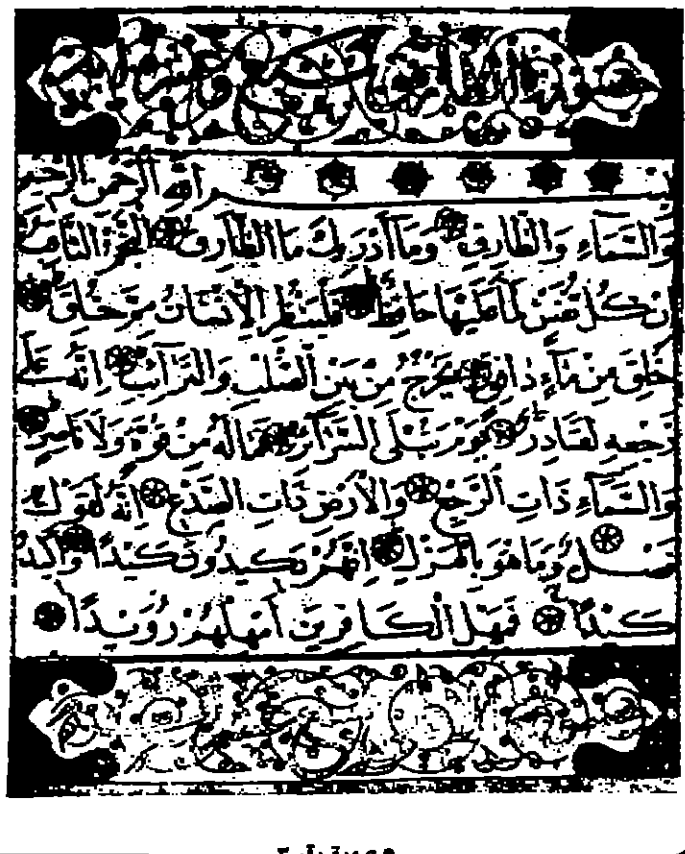 بسم الله الرحمن الرحيم
وَالسَّمَاءِ وَالطَّارِقِ وَمَا أَدْرَىٰكَ مَا الطَّارِقُ النَّجْمُ الثَّاقِبُ
اِنْ كُلُّ نَفْسٍ لَمَّا عَلَيْهَا حَافِظٌ فَلْيَنْظُرِ الْاِنْسَانُ مِمَّ خُلِقَ
خُلِقَ مِنْ مَاءٍ دَافِقٍ يَخْرُجُ مِنْ بَيْنِ الصُّلْبِ وَالتَّرَائِبِ اِنَّهُ عَلَى
رَجْعِهِ لَقَادِرٌ يَوْمَ تُبْلَى السَّرَائِرُ فَمَا لَهُ مِنْ قُوَّةٍ وَلَا نَاصِرٍ
وَالسَّمَاءِ ذَاتِ الرَّجْعِ وَالْاَرْضِ ذَاتِ الصَّدْعِ اِنَّهُ لَقَوْلٌ
فَصْلٌ وَمَا هُوَ بِالْهَزْلِ اِنَّهُمْ يَكِيدُونَ كَيْدًا وَاَكِيدُ
كَيْدًا فَمَهِّلِ الْكَافِرِينَ اَمْهِلْهُمْ رُوَيْدًا